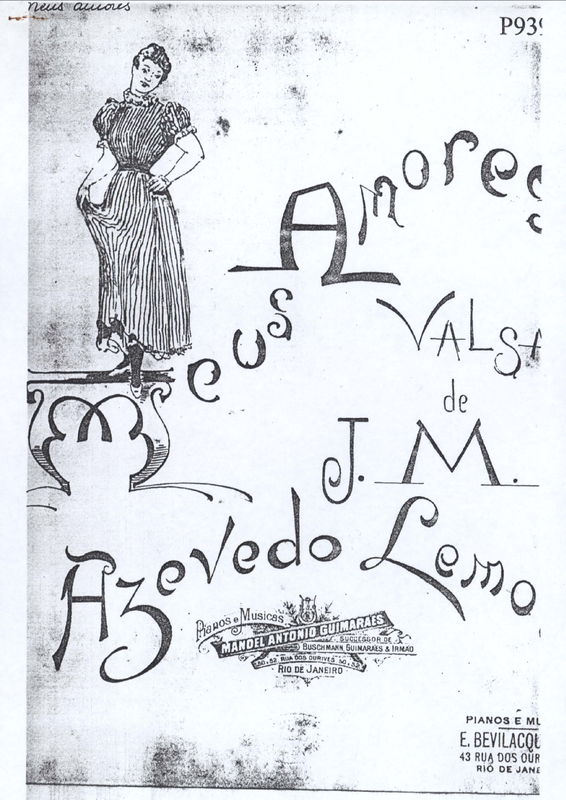 meus amores
P939
Meus Amores
VALSA
de
J. M.
Azevedo Lemo
Pianos e Musicas
MANOEL ANTONIO GUIMARAES
SUCCESSOR DE
BUSCHMANN, GUIMARAES & IRMÃO
50 & 52 RUA DOS OURIVES 50 & 52
RIO DE JANEIRO
PIANOS E MU
E. BEVILACQU
43 RUA DOS OUR
RIO DE JANE